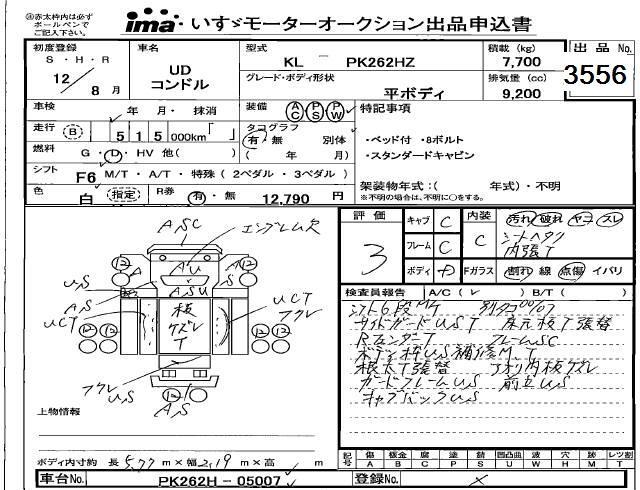 ④赤太枠内は必ず
ボールペンで
ご記入下さい。
ima いすゞモーターオークション出品申込書
初度登録 車名 型式 積載 (kg) 出品 No.
S・H・R UD KL － PK262HZ 7,700 3556
12/8月 コンドル グレード・ボディ形状 排気量 (cc)
平ボディ 9,200
車検 年 月・抹消 装備 AC PS PW 特記事項
走行 B 5 1 5 000km「 」 タコグラフ
有・無 別体 ・ベッド付 ・8ボルト
燃料 G・D・HV 他( ) ( 年 月) ・スタンダードキャビン
シフト F6 M/T・A/T・特殊 ( 2ペダル・3ペダル )
架装物年式：( 年式)・不明
色 白 指定 R券 有・無 12,790 円 ※不明の場合は、不明に○をする。
評価 キャブ C 内装 汚れ 破れ ヤコ スレ
3 フレーム C C シートヘタク
内張T
ボディ D Fガラス 割れ 線 点傷 イパリ
検査員報告 A/C ( レ ) B/T ( )
シフト6段MT 別タコ00/07
サイドガードUST 床元板T張替
RフェンダーT フレームSC
ボディ枠US補修M、T
根太T張替 アオリ内板ズレ
ガードフレームUS 前立US
キャブバックUS
ASC エンブレム欠
12 A AU 12
US
AS ASU
UCT 板 UCT
ズレ アフレ
T
12 12
US
12
AS
上物情報
ボディ内寸約 長 5.77 m×幅 2.19 m×高 m
記号 傷 A 板金 B 腐 C 塗 P 錆 S 凹凸曲 U 波 W 穴 H 跡 M 切 T レツ割
車台No. PK262H－05007 登録No. ×